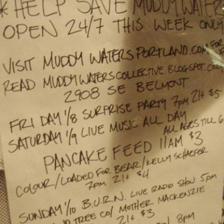 * HELP SAVE MUDDY WATERS
OPEN 24/7 THIS WEEK ONLY
VISIT MUDDYWATERSPORTLAND.COM
READ MUDDYWATERSCOLLECTIVE.BLOGSPOT.COM
2908 SE BELMONT
FRI DAY 1/8 SURPRISE PARTY 7pm 21+ $5
SATURDAY 1/9 LIVE MUSIC ALL DAY
ALL AGES TILL 6
PANCAKE FEED 11AM $3
COLOUR/LOADED FOR BEAR/KELLY SCHAEFER
7pm 21+ $4
SUNDAY 1/10 B.U.R.N. LIVE RADIO SHOW 5pm
TREE CO/ MOTHER MACKENZIE
8pm